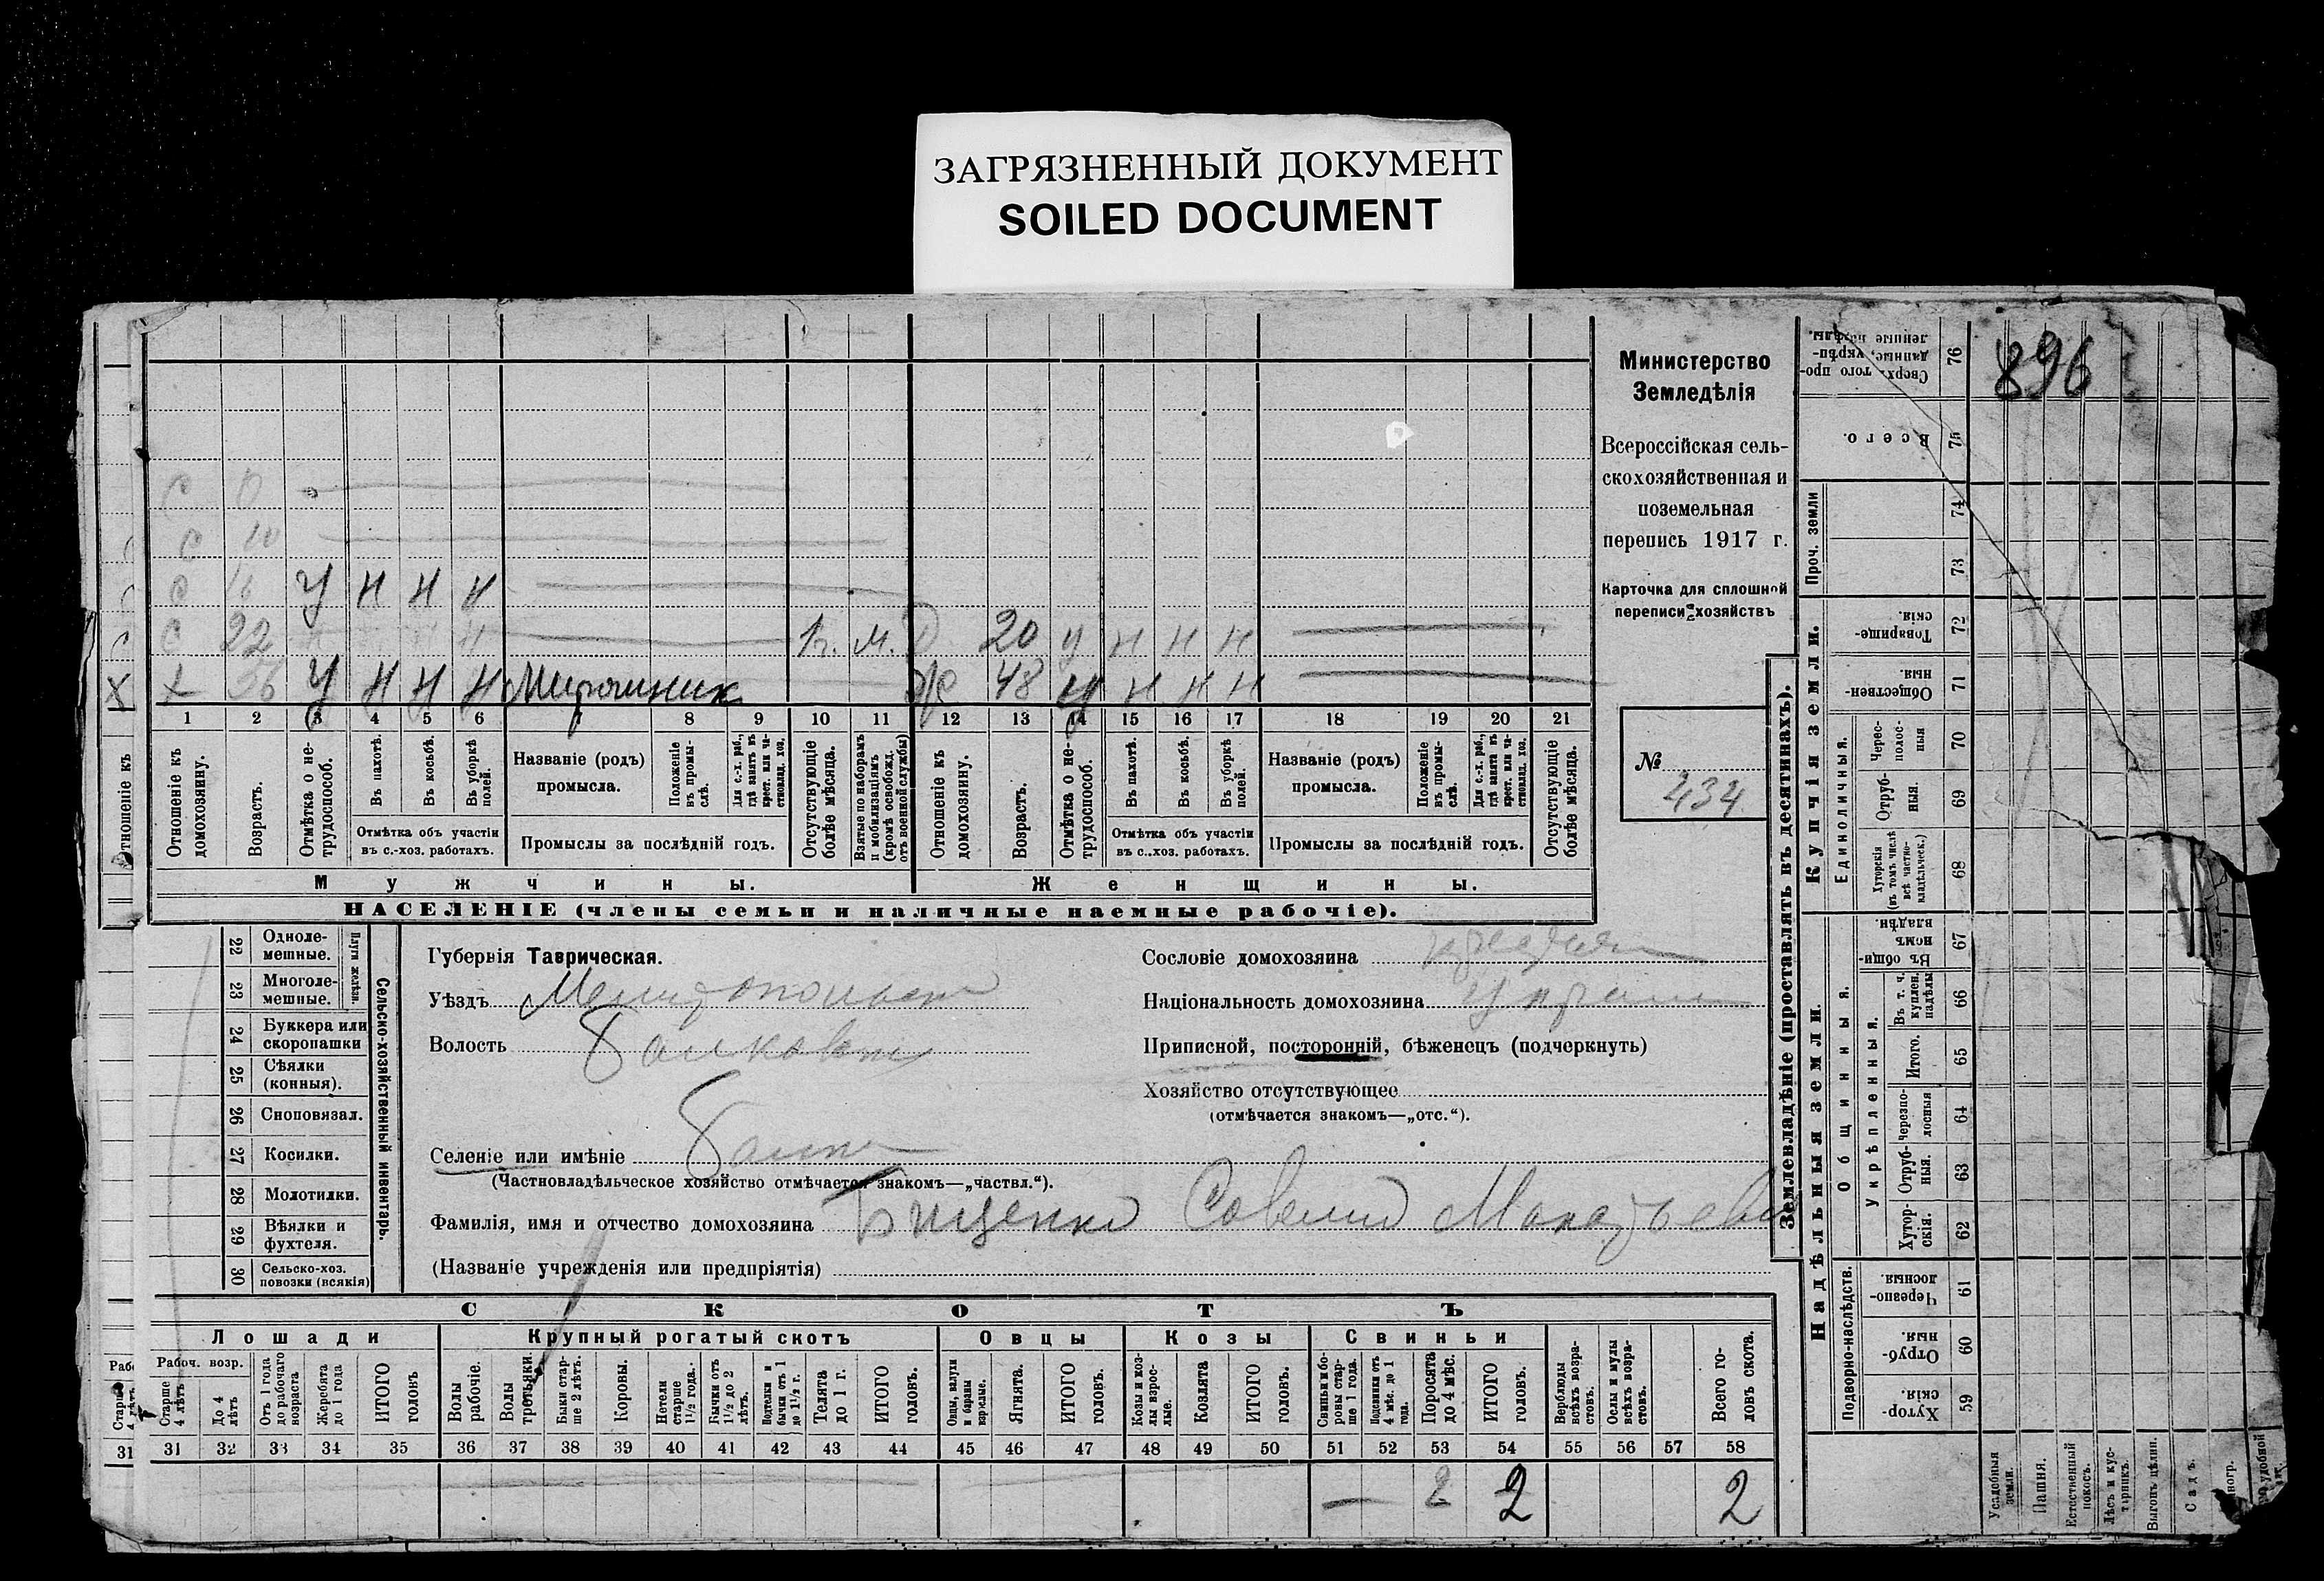 ЗАГРЯЗНЕННЫЙ ДОКУМЕНТ
SOILED DOCUMENT
896
Министерство
Земледѣлія
Всероссійская сель-
скохозяйственная и
поземельная
перепись 1917 г.
Карточка для сплошной
переписи хозяйствъ
№
434
С 0
С 10
С 16 У Н Н Н
С 22 Н 1 г. м. Д 20 У Н Н Н
Х 56 У Н Н Н Мирошник Ж 48 У Н Н Н
1 2 3 4 5 6 7 8 9 10 11 12 13 14 15 16 17 18 19 20 21
Отношеніе къ домохозяину.
Возрастъ.
Отмѣтка о не-трудоспособ.
Въ пахотѣ.
Въ косьбѣ.
Въ уборкѣ полей.
Отмѣтка объ участіи
въ с.-хоз. работахъ.
Названіе (родъ)
промысла.
Положеніе въ промы-слѣ.
Для с.-х. раб., гдѣ занятъ въ крест. или ча-стновлад. хоз.
Промыслы за послѣдній годъ.
Отсутствующіе болѣе мѣсяца.
Взятые по наборамъ и мобилизаціямъ (кромѣ освобожд. отъ военной службы)
Отношеніе къ домохозяину.
Возрастъ.
Отмѣтка о не-трудоспособ.
Въ пахотѣ.
Въ косьбѣ.
Въ уборкѣ полей.
Отмѣтка объ участіи
въ с..хоз. работахъ.
Названіе (родъ)
промысла.
Положеніе въ промы-слѣ.
Для с.-х. раб., гдѣ занята въ крест. или ча-стновлад. хоз.
Промыслы за послѣдній годъ.
Отсутствующіе болѣе мѣсяца.
Мужчины.
Женщины.
НАСЕЛЕНІЕ (члены семьи и наличные наемные рабочіе).
22 Одноле-мешные.
23 Многоле-мешные.
Плуги желѣзн.
24 Буккера или скоропашки
25 Сѣялки (конныя).
26 Сноповязал.
27 Косилки.
28 Молотилки.
29 Вѣялки и фухтеля.
30 Сельско-хоз. повозки (всякія)
Сельско-хозяйственный инвентарь.
Губернія Таврическая.
Уѣздъ Мелитопольск
Волость Балковск
Селеніе или имѣніе Балк
(Частновладѣльческое хозяйство отмѣчается знакомъ—„частвл.“).
Фамилія, имя и отчество домохозяина Бищенко Савелий
(Названіе учрежденія или предпріятія)
Сословіе домохозяина
Національность домохозяина Украин
Приписной, посторонній, бѣженецъ (подчеркнуть)
Хозяйство отсутствующее
(отмѣчается знакомъ—„отс.“).
СКОТЪ
Лошади
Крупный рогатый скотъ
Овцы
Козы
Свиньи
Рабоч. возр.
Старше 4 лѣтъ
До 4 лѣтъ
Отъ 1 года до рабочаго возраста
Жеребята до 1 года
ИТОГО головъ
Волы рабочіе.
Волы третьяки.
Быки стар-ше 2 лѣтъ.
Коровы.
Нетели старше 1½ года.
Бычки отъ 1½ до 2 лѣтъ.
Подтелки и бычки отъ 1 до 1½ г.
Телята до 1 г.
ИТОГО головъ.
Овцы, валухи и бараны взрослые.
Ягнята.
ИТОГО головъ.
Козы и коз-лы взрос-лые.
Козлята
ИТОГО головъ.
Свиньи и бо-ровы стар-ше 1 года.
Подсвинки отъ 4 мѣс. до 1 года.
Поросята до 4 мѣс.
ИТОГО головъ.
Верблюды всѣхъ возра-стовъ.
Ослы и мулы всѣхъ возра-стовъ.
Всего го-ловъ скота.
31 32 33 34 35 36 37 38 39 40 41 42 43 44 45 46 47 48 49 50 51 52 53 54 55 56 57 58
2 2 2
Землевладѣніе (проставлять въ десятинахъ).
Сверхъ того про-данные, укрѣп-ленные надѣлы. 76
Всего. 75
Проч. земли
74
73
Купчія земли.
Товарище-скія. 72
Обществен-ныя 71
Единоличныя.
Черес-полос-ныя 70
Отруб-ныя. 69
Хуторскія (въ томъ числѣ всѣ частно-владѣльческ.) 68
Надѣльныя земли.
Общинныя.
Въ общин-номъ владѣн. 67
Укрѣпленныя.
Въ т. ч. куплен. надѣлы 66
Итого. 65
Черезпо-лосныя 64
Отруб-ныя. 63
Хутор-скія. 62
Подворно-наслѣдств.
Черезпо-лосныя. 61
Отруб-ныя 60
Хутор-скія. 59
Усадебныя земли.
Пашня.
Естественный покосъ.
Лѣсъ и кус-тарникъ.
Выгонъ цѣлин.
Садъ.